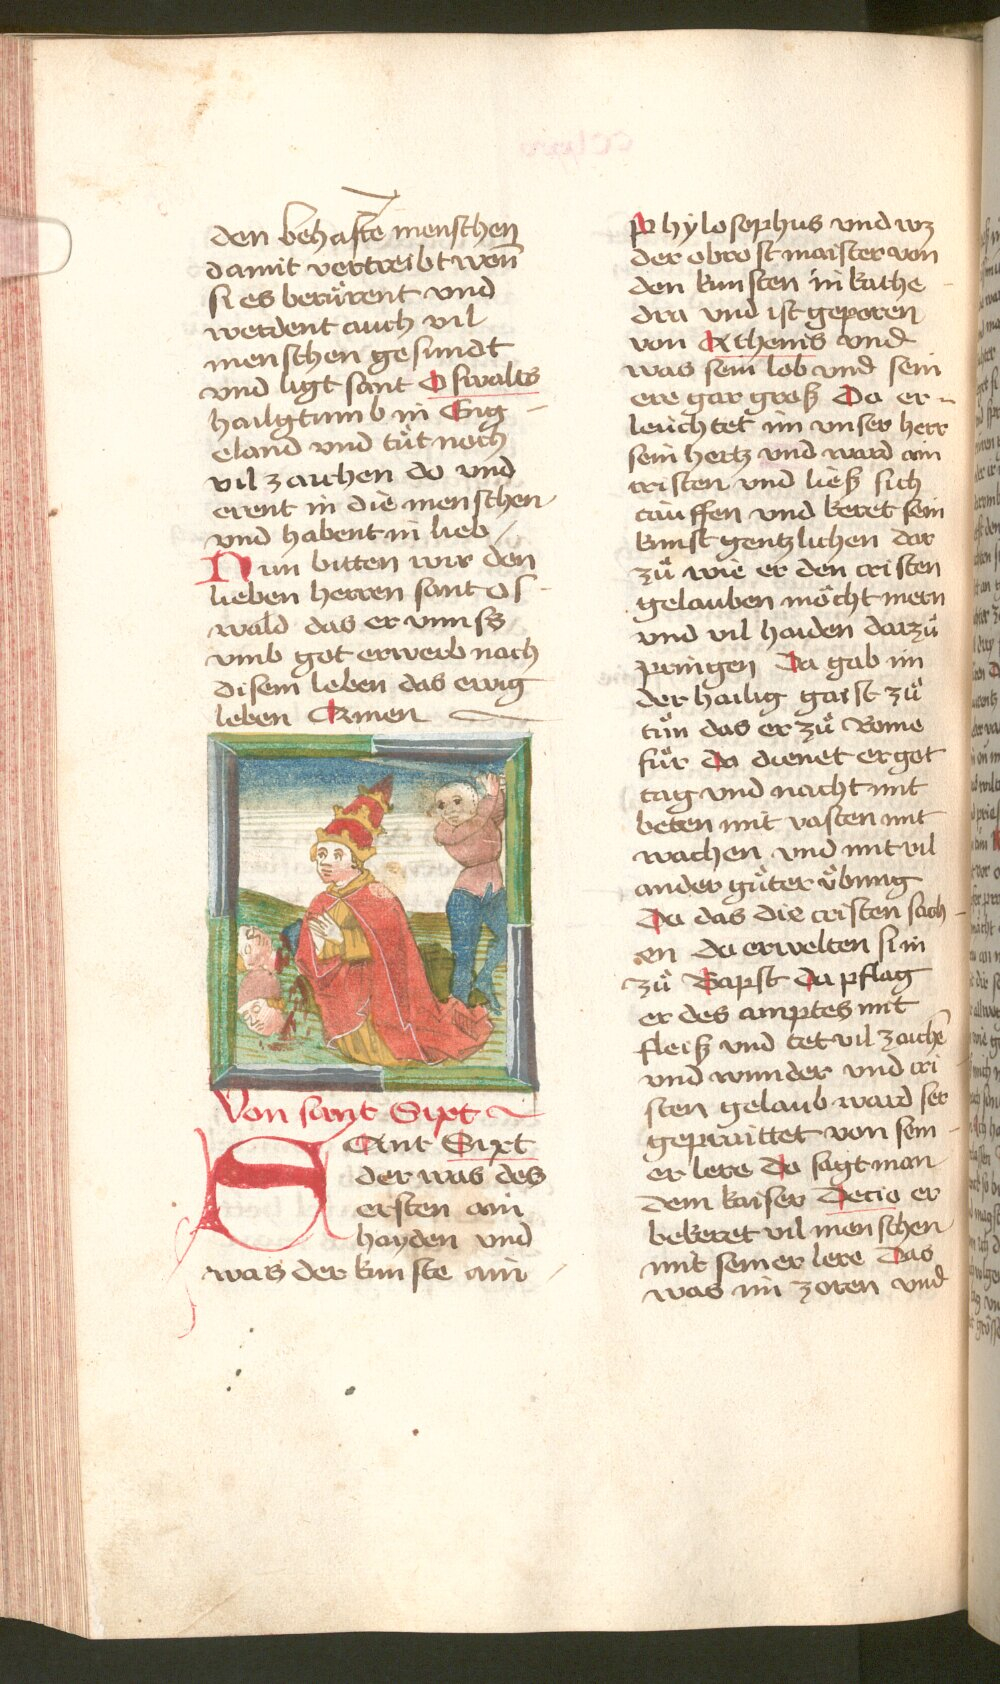 den behafte menschen
damit vertreibt wen̄
si es berürent und
werdent auch vil
menschen gesundt
und ligt sant Oswalts
hailgtumb in Eng
eland und tüt noch
vil zaichen do und
erent in die menschen
und habent in lieb
Nun bitten wir den
lieben herren sant Os
wald das er unnss
umb got erwerb nach
disem leben das ewig
leben Amen
Von sant Sixt
SAnt Sixt
der was des
ersten ain
hayden und
was der kunste ain
Phylosophus und wz
der obrost maister von
den kunsten in kathe
dra und ist geporen
von Athenis und
was sein lob und sein
ere gar groß Da er
leüchtet im unser herr
sein hertz und ward ain
cristen und ließ sich
tauffen und keret sein
kunst gentzlichen dar
zů wie er den cristen
gelauben möcht mern
und vil haiden darzů
pringen Da gab im
der hailig gaist zů
tůn das er zů Rome
fůr da dienet er got
tag und nacht mit
beten mit vasten mit
wachen und mit vil
ander gůter übung
Da das die cristen sach
en da erwelten si in
zů Bapst da pflag
er des amptes mit
fleiß und tet vil zaichē
und wunder und cri
sten gelaub ward ser
gepraittet von sein
er lere Do sagt man
dem kaiser Decio er
bekeret vil menschen
mit seiner lere Das
was im zoren und